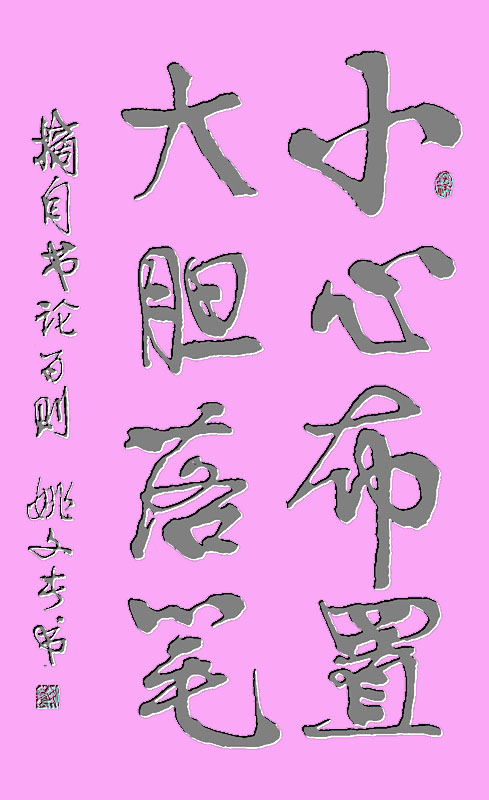 小心布置
大胆落笔
摘自书论百则 姚文奇书